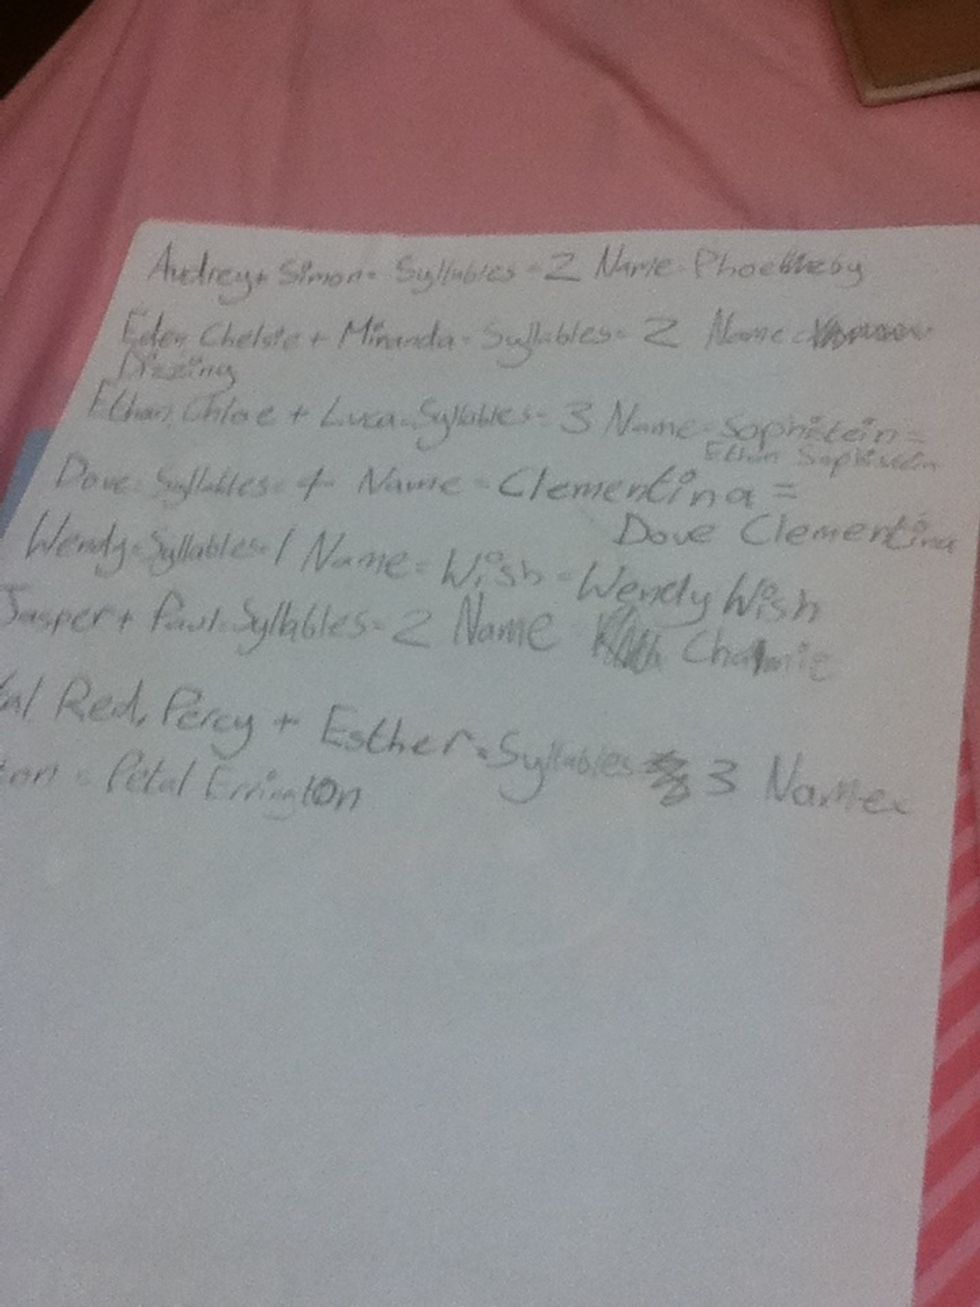 Audrey + Simon = Syllables = 2 Name = Phoebheby
Eden, Chelsie + Miranda = Syllables = 2 Name =
Dizzing
Ethan, Chloe + Luca = Syllables = 3 Name = Sophistein =
Ethan Sophistein
Dove = Syllables = 4 Name = Clementina =
Dove Clementina
Wendy = Syllables = 1 Name = Wish = Wendy Wish
Jasper + Paul = Syllables = 2 Name =
al Red, Percy + Esther = Syllables 3 Name =
ton = Petal Errington